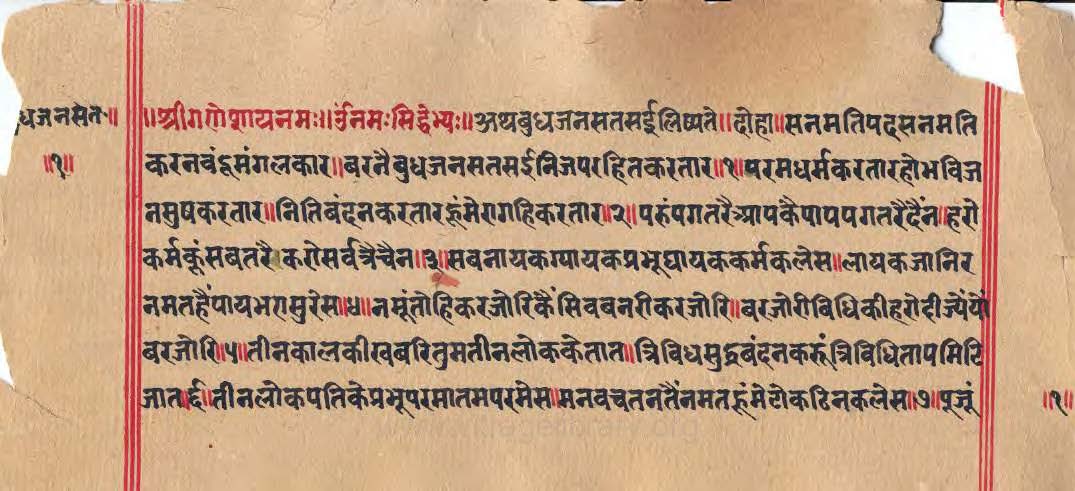 धजनसत॥
॥१॥
॥श्रीगणेशायनमः॥उंनमःसिद्धेभ्यः॥अथबुधजनसतसईलिष्यते॥दोहा॥सनमतिपदसनमति
करनबंदूमंगलकार॥बरनैबुधजनसतसईनिजपरहितकरतार॥१॥परमधर्मकरतारहोभविज
नसुषकरतार॥नितिबंदनकरतारहूंमेरागहिकरतार॥२॥परूंपगतरैआपकैपापपगतरैदैंन॥हरो
कर्मकूंसबतरैकरोसर्वत्रैचैन॥३॥सबनायकग्यायकप्रभूघायककर्मकलेस॥लायकजानिर
नमतहैंपायभगासुरेस॥४॥नमूंतोहिकरजोरिकैंसिवबनरीकरजोरि॥बरजोरीबिधिकीहरोदीज्यैयों
बरजोरि॥५॥तीनकालकीखबरितुमतीनलोककेतात॥त्रिविधसुद्धबंदनकरूंत्रिविधितापमिटि
जात॥६॥तीनलोकपतिकेप्रभूपरमातमपरमेस॥मनबचतनतैंनमतहूंमेटोकठिनकलेस॥७॥पूजूं
॥१॥